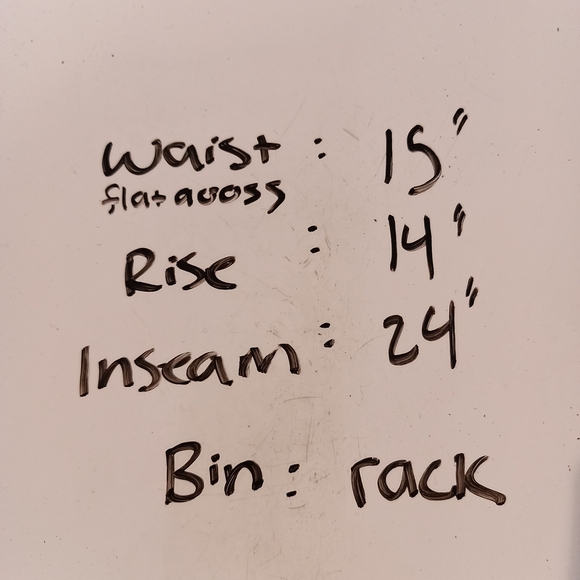 Waist : 15"
flat across
Rise : 14"
Inseam : 24"
Bin : rack